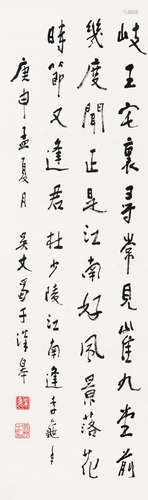 岐王宅裏尋常見崔九堂前
幾度聞正是江南好風景落花
時節又逢君杜少陵江南逢李龜年
庚申孟夏月 吳丈蜀于漢皋